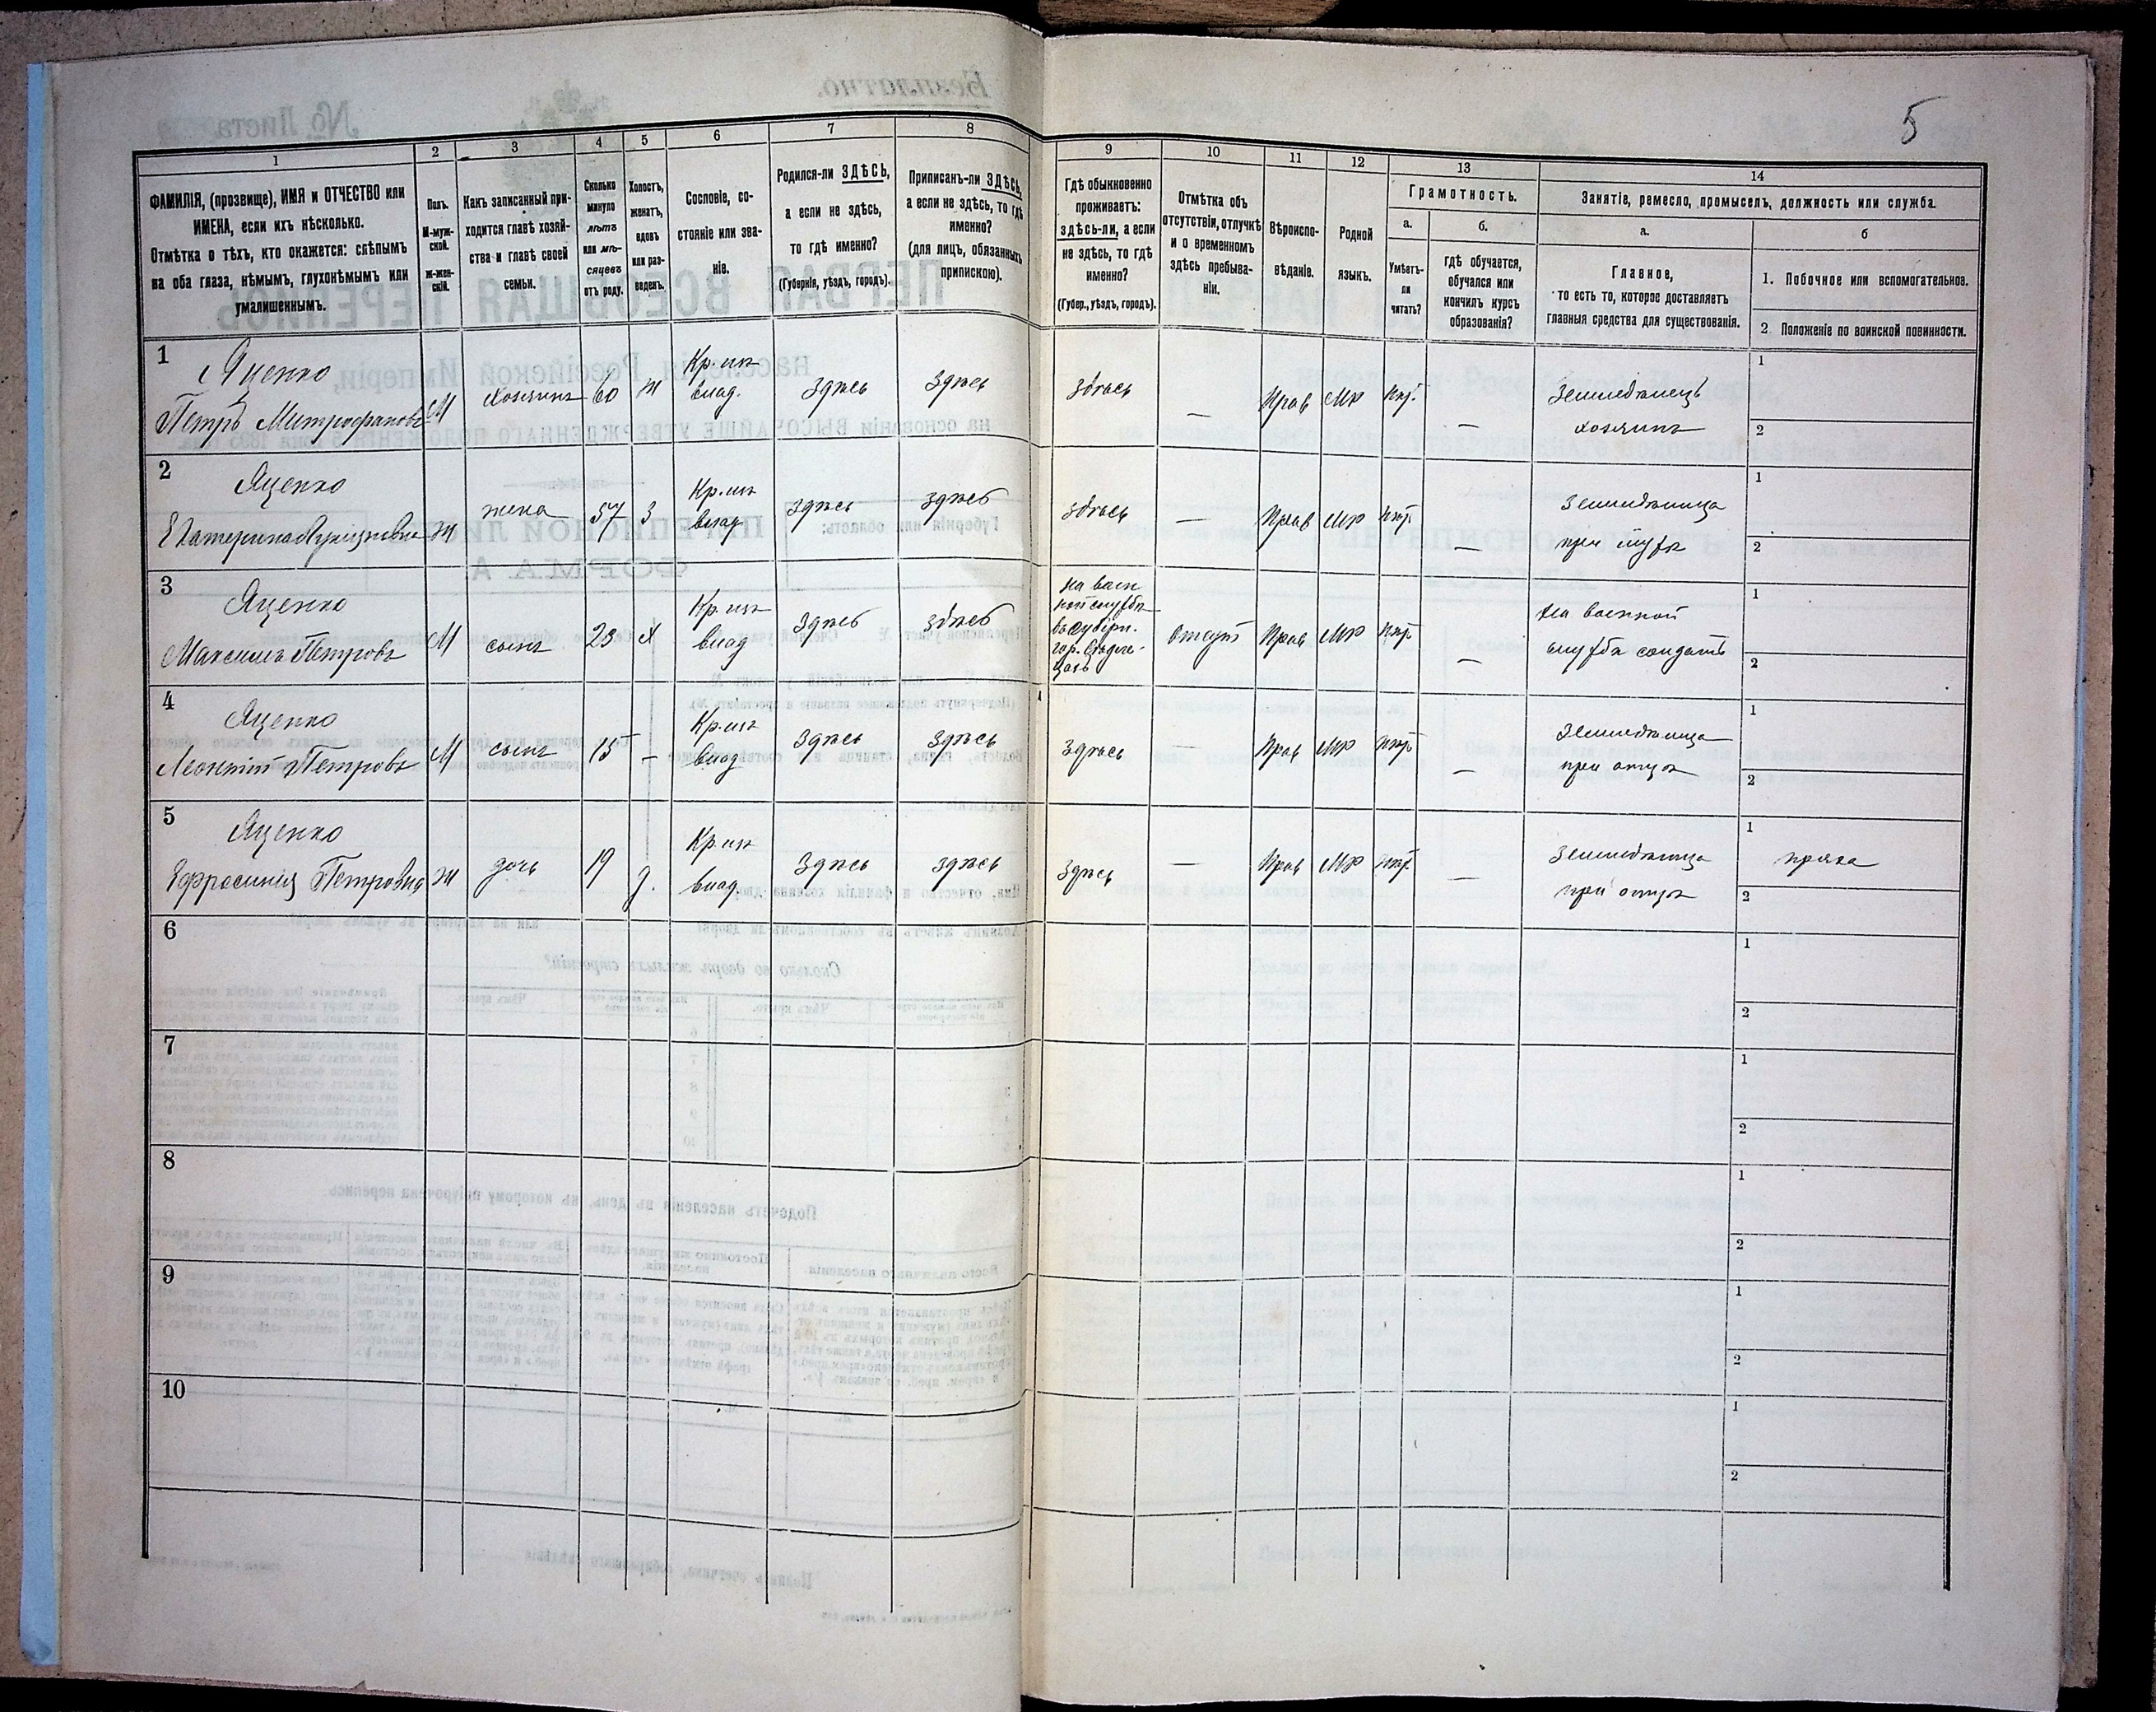 5
1 2 3 4 5 6 7 8 9 10 11 12 13 14
ФАМИЛІЯ, (прозвище), ИМЯ и ОТЧЕСТВО или
ИМЕНА, если ихъ нѣсколько.
Отмѣтка о тѣхъ, кто окажется: слѣпымъ
на оба глаза, нѣмымъ, глухонѣмымъ или
умалишеннымъ.
Полъ.
М-муж-
ской.
ж-жен-
скій.
Какъ записанный при-
ходится главѣ хозяй-
ства и главѣ своей
семьи.
Сколько
минуло
лѣтъ
или мѣ-
сяцевъ
отъ роду.
Холостъ,
женатъ,
вдовъ
или раз-
веденъ.
Сословіе, со-
стояніе или зва-
ніе.
Родился-ли ЗДѢСЬ,
а если не здѣсь,
то гдѣ именно?
(Губернія, уѣздъ, городъ).
Приписанъ-ли ЗДѢСЬ,
а если не здѣсь, то гдѣ
именно?
(для лицъ, обязанныхъ
припискою).
Гдѣ обыкновенно
проживаетъ:
здѣсь-ли, а если
не здѣсь, то гдѣ
именно?
(Губер., уѣздъ, городъ).
Отмѣтка объ
отсутствіи, отлучкѣ
и о временномъ
здѣсь пребыва-
ніи.
Вѣроиспо-
вѣданіе.
Родной
языкъ.
Грамотность.
а.
Умѣетъ-
ли
читать?
б.
гдѣ обучается,
обучался или
кончилъ курсъ
образованія?
Занятіе, ремесло, промыселъ, должность или служба.
а.
Главное,
то есть то, которое доставляетъ
главныя средства для существованія.
б
1. Побочное или вспомогательное.
2. Положеніе по воинской повинности.
1
Яценко
Петръ Митрофановъ М хозяинъ 60 ж Кр. изъ
влад. здѣсь здѣсь здѣсь — Прав Мр — Земледѣлецъ
хозяинъ
1
2
2
Яценко
Екатерина ж жена 57 З Кр. изъ
влад здѣсь здѣсь здѣсь — Прав Мр — Земледѣлица
при мужѣ
1
2
3
Яценко
Максимъ Петровъ М сынъ 23 х Кр. изъ
влад здѣсь здѣсь
На воен
ной службѣ
отсут Прав Мр — На военной
службѣ солдатъ
1
2
4
Яценко
Леонтій Петровъ М сынъ 15 — Кр. изъ
влад здѣсь здѣсь здѣсь — Прав Мр — Земледѣлица
при отцѣ
1
2
5
Яценко
Ефросинія Петровна ж дочь 19 д. Кр изъ
влад. здѣсь здѣсь здѣсь — Прав Мр — Земледѣлица
при отцѣ
1 пряха
2
6
1
2
7
1
2
8
1
2
9
1
2
10
1
2